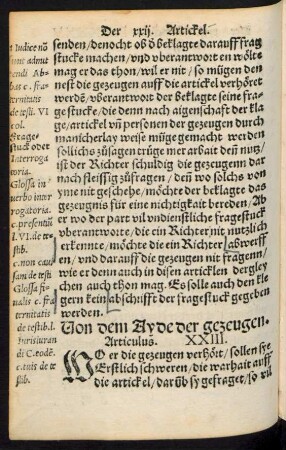 Der xxij. Artickel.
senden/denocht ob d beklagte darauff frag
stucke machen/vnd vberantwort en wölt=
mag er das thon/wil er nit/so mügen den
nest die gezeugen auff die artickel verhöret
werdē/vberantwort der beklagte seine fra=
gestucke/die denn nach aigenschafft der kla
ge/artickel/vñ personen der gezeugen durch
mancherlay weise müge gemacht werden
solichs züsagen trüge mer arbait denn nutz/
ist der Richter schuldig die gezeugenn dar
nach fleissig züfragen/denn wo solchs von
yme nit geschehe/möchte der beklagte das
gezeugnis für eine nichtigkait bereden/Ab
er wo der part vil vndienstliche fragestuck
vberantwort/die ein Richter nit nutzlich
erkennte/möchte die ein Richter abwerff
en/vnd darauff die gezeugen nit fragenn/
wie er denn auch in disen articklen dergley
chen auch thon mag. Es solle auch den kle
gern kein abschrifft der fragestuck gegeben
werden.
Von dem Ayde der gezeugen.
Articulus. XXIII.
WO er die gezeugen verhört/sollen sye
Erstlich schweren/die warhait auff
die artickel/darüb sy gefraget/so vil
t Indice nō
sunt admit
tendi Ab=
bas c. frat
ternitatis
de testi. VI
col.
Frage=
stuck oder
Interroga
toria.
Glossa in
verbo inter
rogatoria.
c. presentiū
I. VI. de te=
stib.
c. non cau
sam de testi
Glossa fi=
nalis c. fra
ternitatis
de testib. l.
Iurisiuran
di C. eodē.
c. tuis de te
stib.